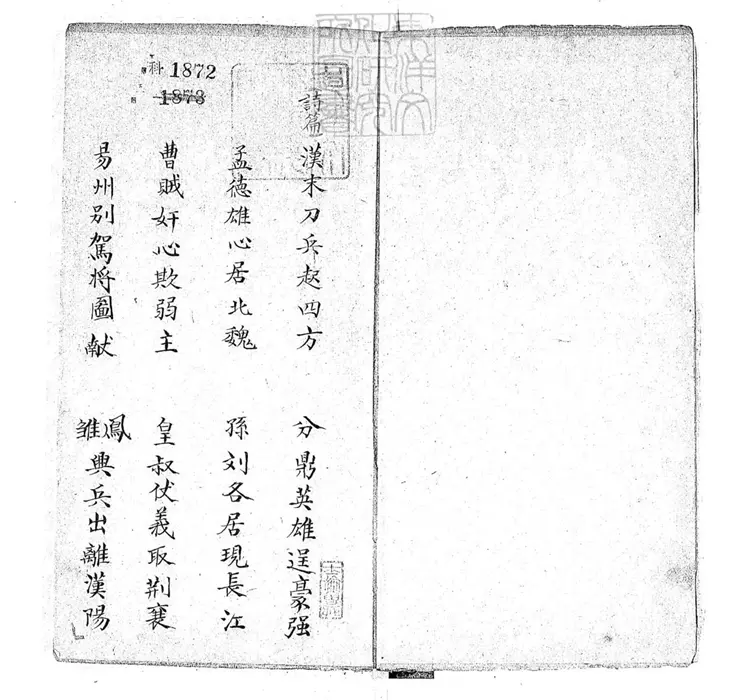 詩篇
漢末刀兵起四方
分鼎英雄逞豪强
孟德雄心居北魏
孫刘各居現長江
曹賊奸心欺弱主
皇叔伏義取荆襄
易州别駕将圖献
鳳雛興兵出離漢陽
科 1872
1873